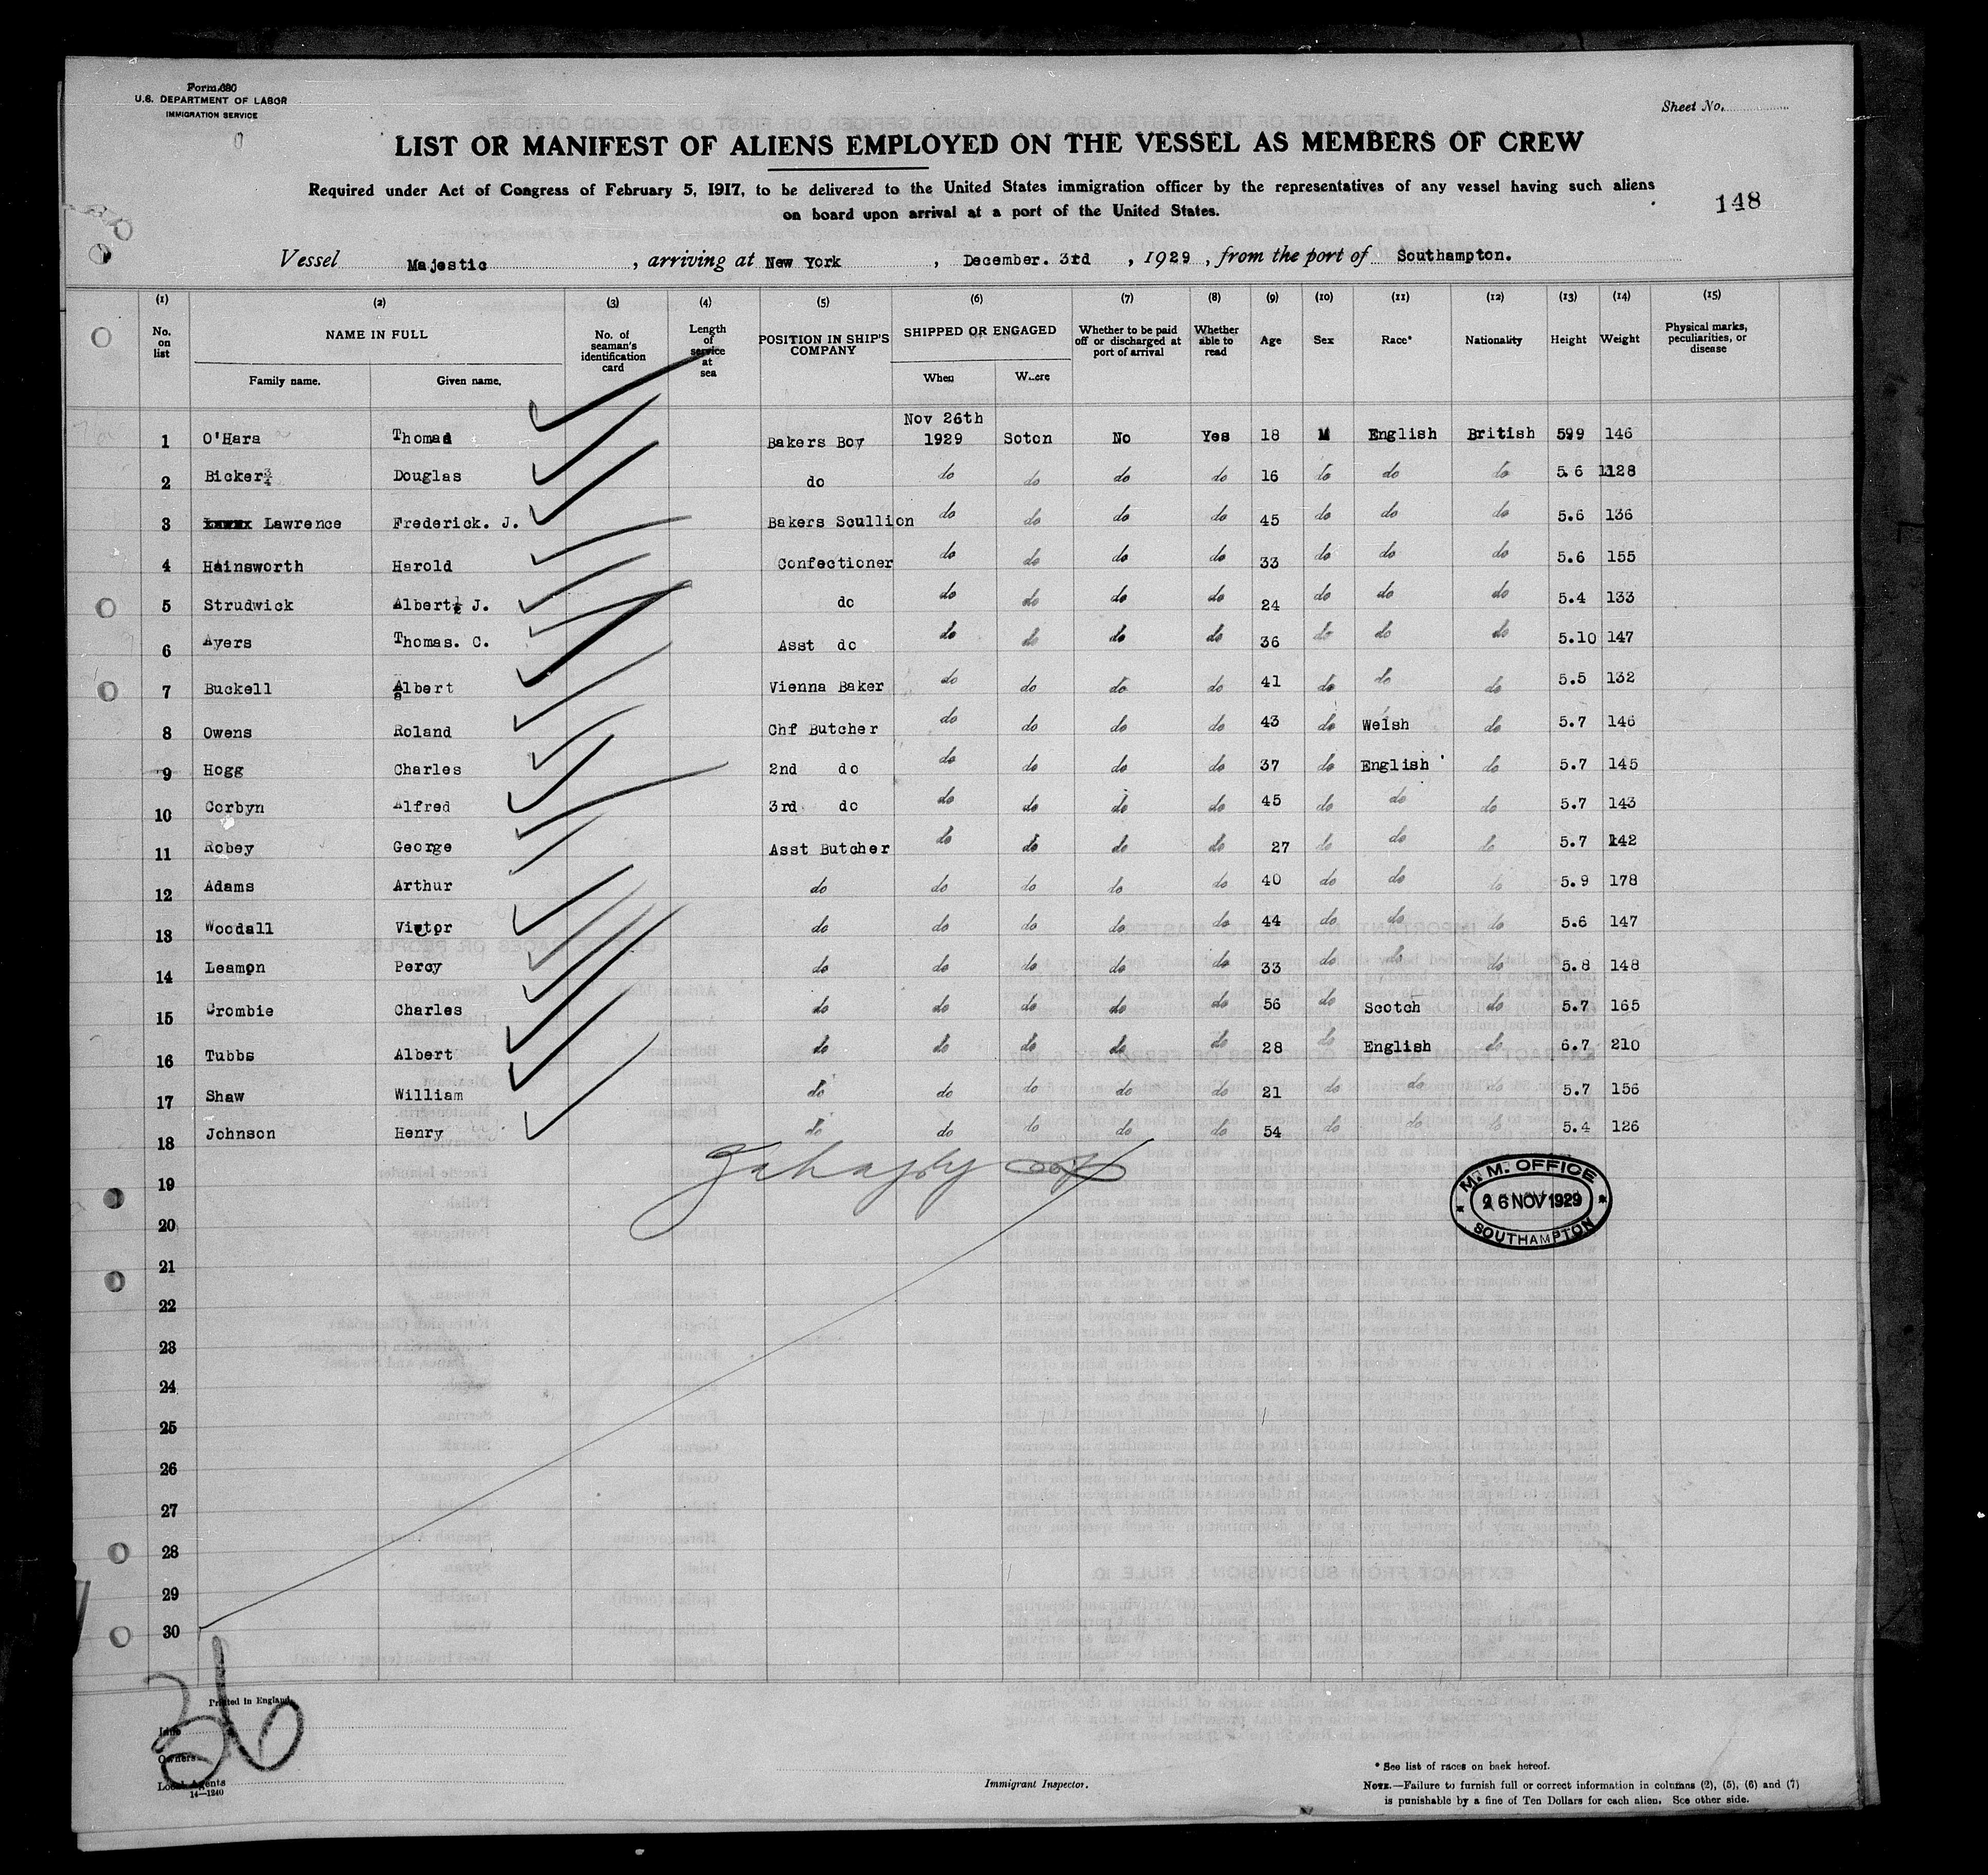 Form 680
U.S. DEPARTMENT OF LABOR
IMMIGRATION SERVICE
Sheet No.
LIST OR MANIFEST OF ALIENS EMPLOYED ON THE VESSEL AS MEMBERS OF CREW
Required under Act of Congress of February 5, 1917, to be delivered to the United States immigration officer by the representatives of any vessel having such aliens
on board upon arrival at a port of the United States.
148
Vessel Majestic, arriving at New York, December. 3rd, 1929, from the port of Southampton.
(1) (2) (3) (4) (5) (6) (7) (8) (9) (10) (11) (12) (13) (14) (15)
No. on list NAME IN FULL Family name. Given name. No. of seaman's identification card Length of service at sea POSITION IN SHIP'S COMPANY SHIPPED OR ENGAGED When Where Whether to be paid off or discharged at port of arrival Whether able to read Age Sex Race* Nationality Height Weight Physical marks, peculiarities, or disease
1 O'Hara Thomas Bakers Boy Nov 26th 1929 Soton No Yes 18 M English British 599 146
2 Bicker¾ Douglas do do do do do 16 do do do 5.6 1128
3 Lawrence Frederick. J. Bakers Scullion do do do do 45 do do do 5.6 136
4 Hainsworth Harold Confectioner do do do do 33 do do do 5.6 155
5 Strudwick Albert J. do do do do do 24 do do do 5.4 133
6 Ayers Thomas. C. Asst do do do do do 36 do do do 5.10 147
7 Buckell Albert Vienna Baker do do do do 41 do do do 5.5 132
8 Owens Roland Chf Butcher do do do do 43 do Welsh do 5.7 146
9 Hogg Charles 2nd do do do do do 37 do English do 5.7 145
10 Corbyn Alfred 3rd do do do do do 45 do do do 5.7 143
11 Robey George Asst Butcher do do do do 27 do do do 5.7 142
12 Adams Arthur do do do do do 40 do do do 5.9 178
13 Woodall Victor do do do do do 44 do do do 5.6 147
14 Leamon Percy do do do do do 33 do do do 5.8 148
15 Crombie Charles do do do do do 56 do Scotch do 5.7 165
16 Tubbs Albert do do do do do 28 do English do 6.7 210
17 Shaw William do do do do do 21 do do do 5.7 156
18 Johnson Henry do do do do do 54 do do do 5.4 126
19
20
21
22
23
24
25
26
27
28
29
30
M. M. OFFICE
26 NOV 1929
SOUTHAMPTON
36
Printed in England.
Line
Owners
Local Agents
14—1240
Immigrant Inspector.
* See list of races on back hereof.
NOTE.—Failure to furnish full or correct information in columns (2), (5), (6) and (7)
is punishable by a fine of Ten Dollars for each alien. See other side.